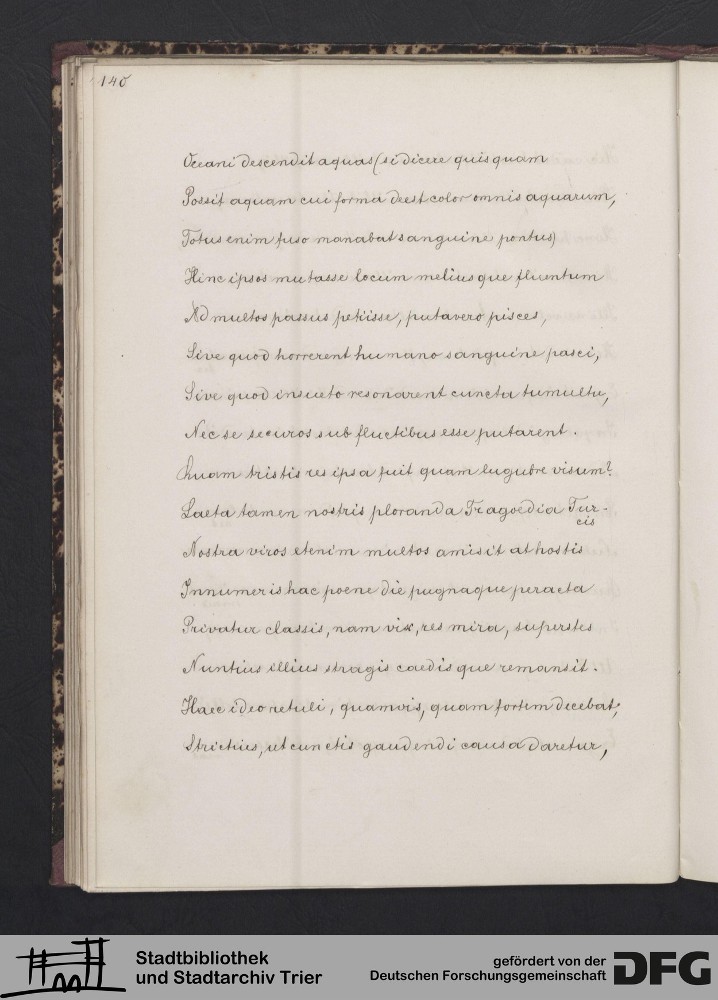 140
Oceani descendit aquas (si dicere quisquam
Possit aquam cui forma deest color omnis aquarum,
Totus enim fuso manabat sanguine pontus)
Hinc ipsos mutasse locum meliusque fluentum
Ad multos passus petiisse, putavero pisces,
Sive quod horrerent humano sanguine pasci,
Sive quod insueto resonarent cuncta tumultu,
Nec se securos sub fluctibus esse putarent.
Quam tristis res ipsa fuit quam lugubre visum?
Laeta tamen nostris ploranda Tragoedia Tur-
cis
Nostra viros etenim multos amisit at hostis
Innumeris hac poene die pugnaque peracta
Privatur classis, nam vix, res mira, superstes
Nuntius illius stragis caedisque remansit.
Haec ideo retuli, quamvis, quam fortem decebat,
Strictius, ut cunctis gaudendi causa daretur,
Stadtbibliothek
und Stadtarchiv Trier
gefördert von der
Deutschen Forschungsgemeinschaft
DFG